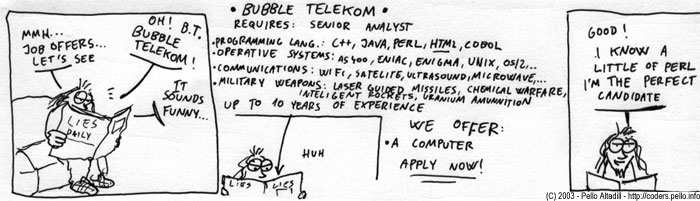 MMH...
JOB OFFERS...
LET'S SEE
OH! B.T.
BUBBLE
TELEKOM!
IT
SOUNDS
FUNNY...
LIES
DAILY
• BUBBLE TELEKOM •
REQUIRES: SENIOR ANALYST
• PROGRAMMING LANG.: C++, JAVA, PERL, HTML, COBOL
• OPERATIVE SYSTEMS: AS400, ENIAC, ENIGMA, UNIX, OS/2,...
• COMMUNICATIONS: WIFI, SATELITE, ULTRASOUND, MICROWAVE,...
• MILITARY WEAPONS: LASER GUIDED MISSILES, CHEMICAL WARFARE,
INTELIGENT ROCKETS, URANIUM AMMUNITION
UP TO 10 YEARS OF EXPERIENCE
HUH
LIES LIES
WE OFFER:
• A COMPUTER
APPLY NOW!
GOOD!
I KNOW A
LITTLE OF PERL
I'M THE PERFECT
CANDIDATE
(C) 2003 - Pello Altadill - http://coders.pello.info